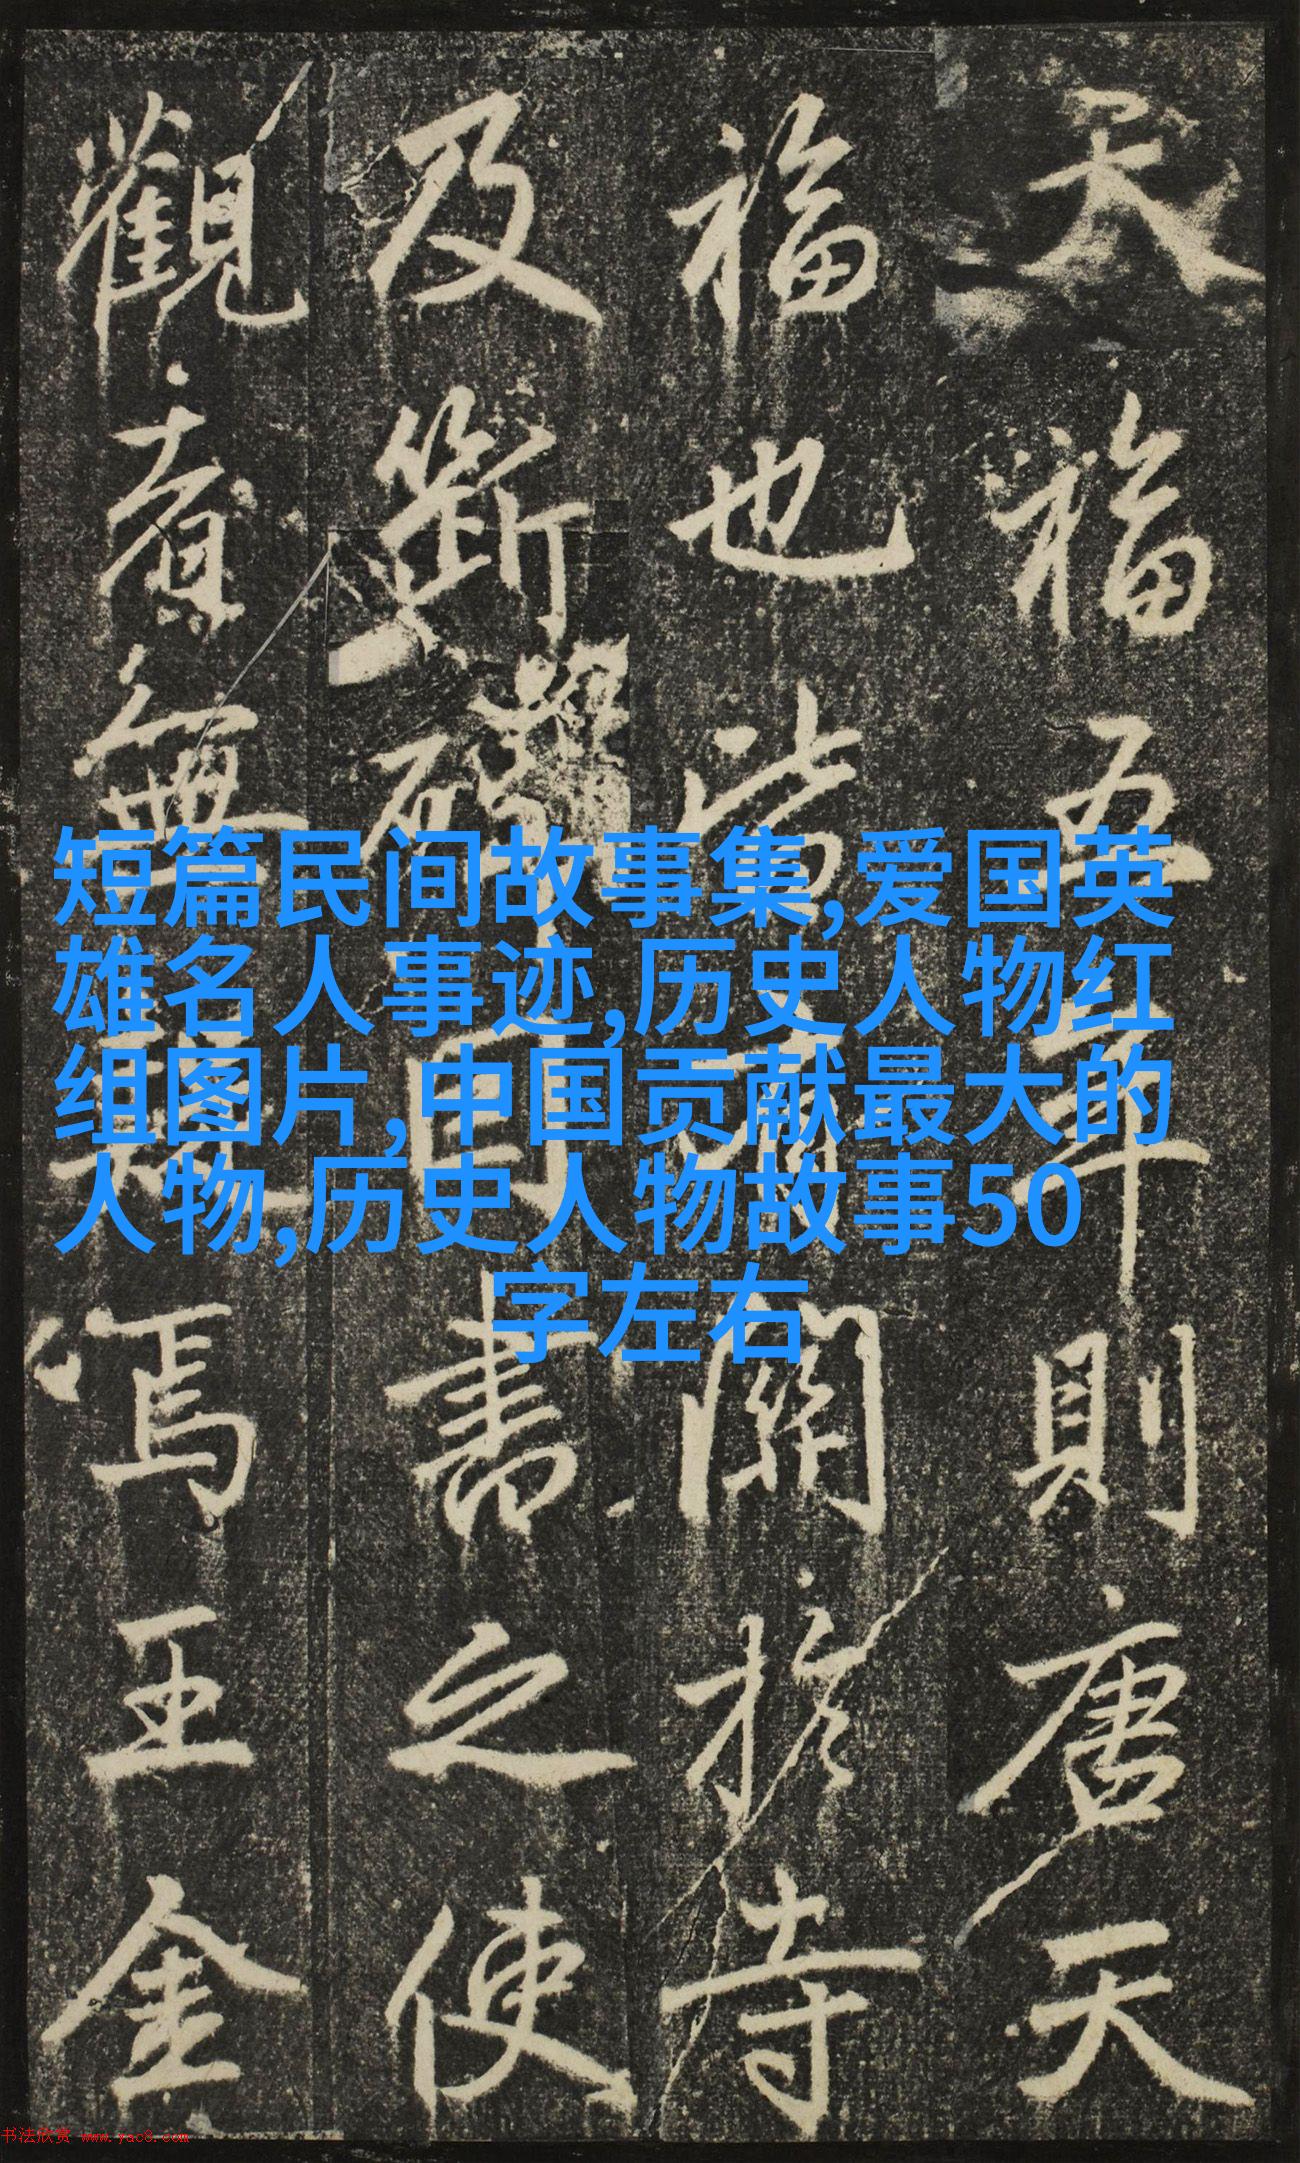 短篇民间故事集,爱国英
雄名人事迹,历史人物红
组图片,中国贡献最大的
人物,历史人物故事50
字左右
天福五年則唐天
福也當關於寺
及斷碑目書之使
觀無疑焉王金
书法欣赏 www.yac8.com